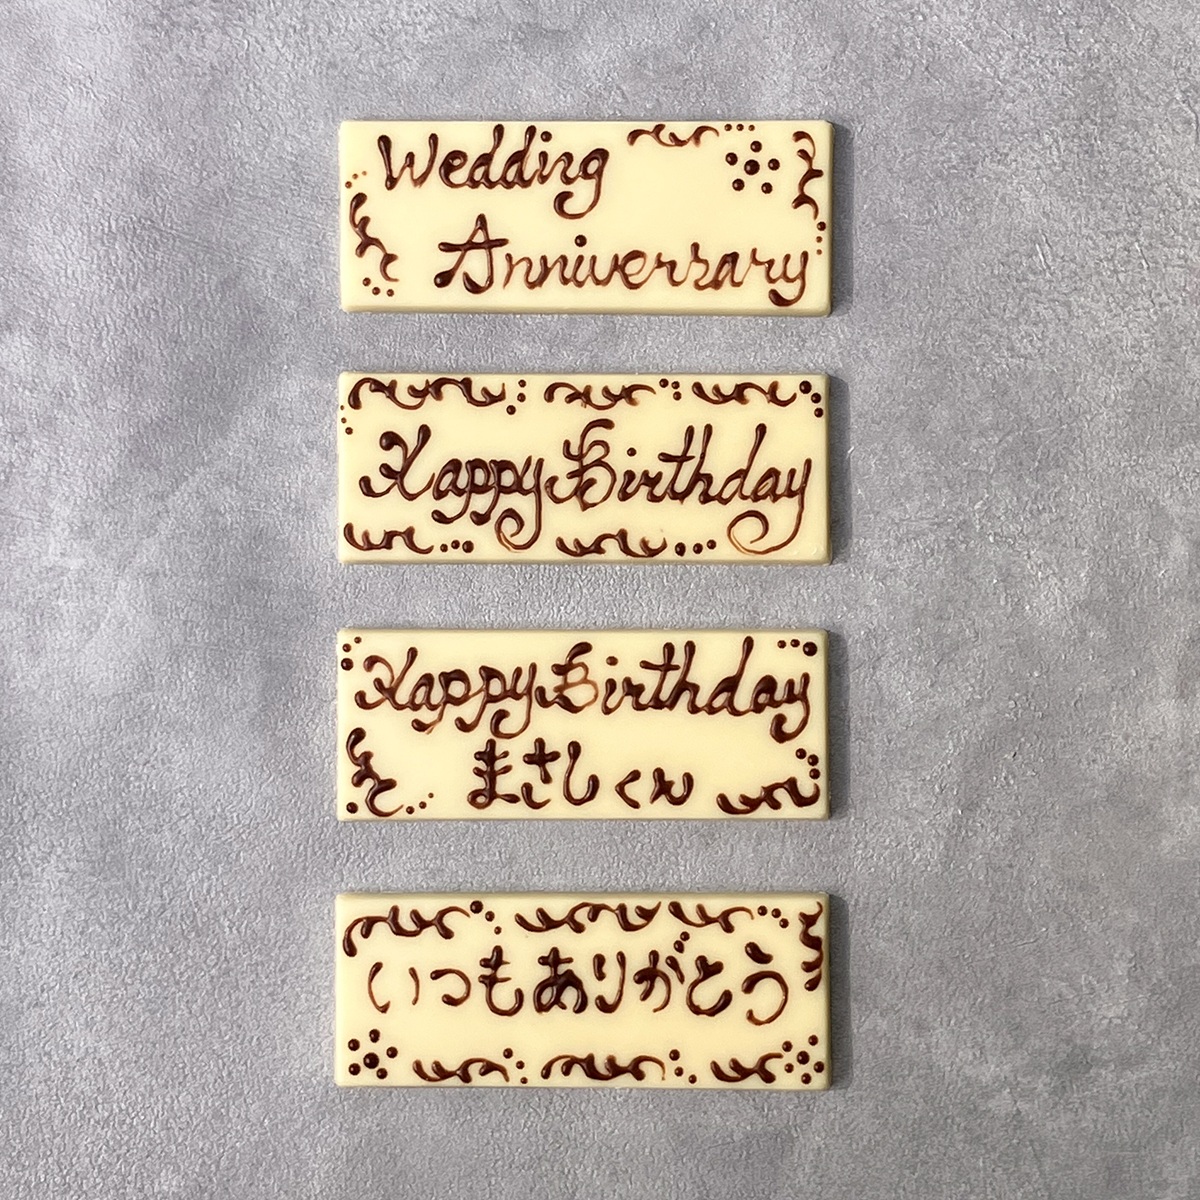 Wedding
Anniversary
Happy Birthday
Happy Birthday
まさしくん
いつもありがとう